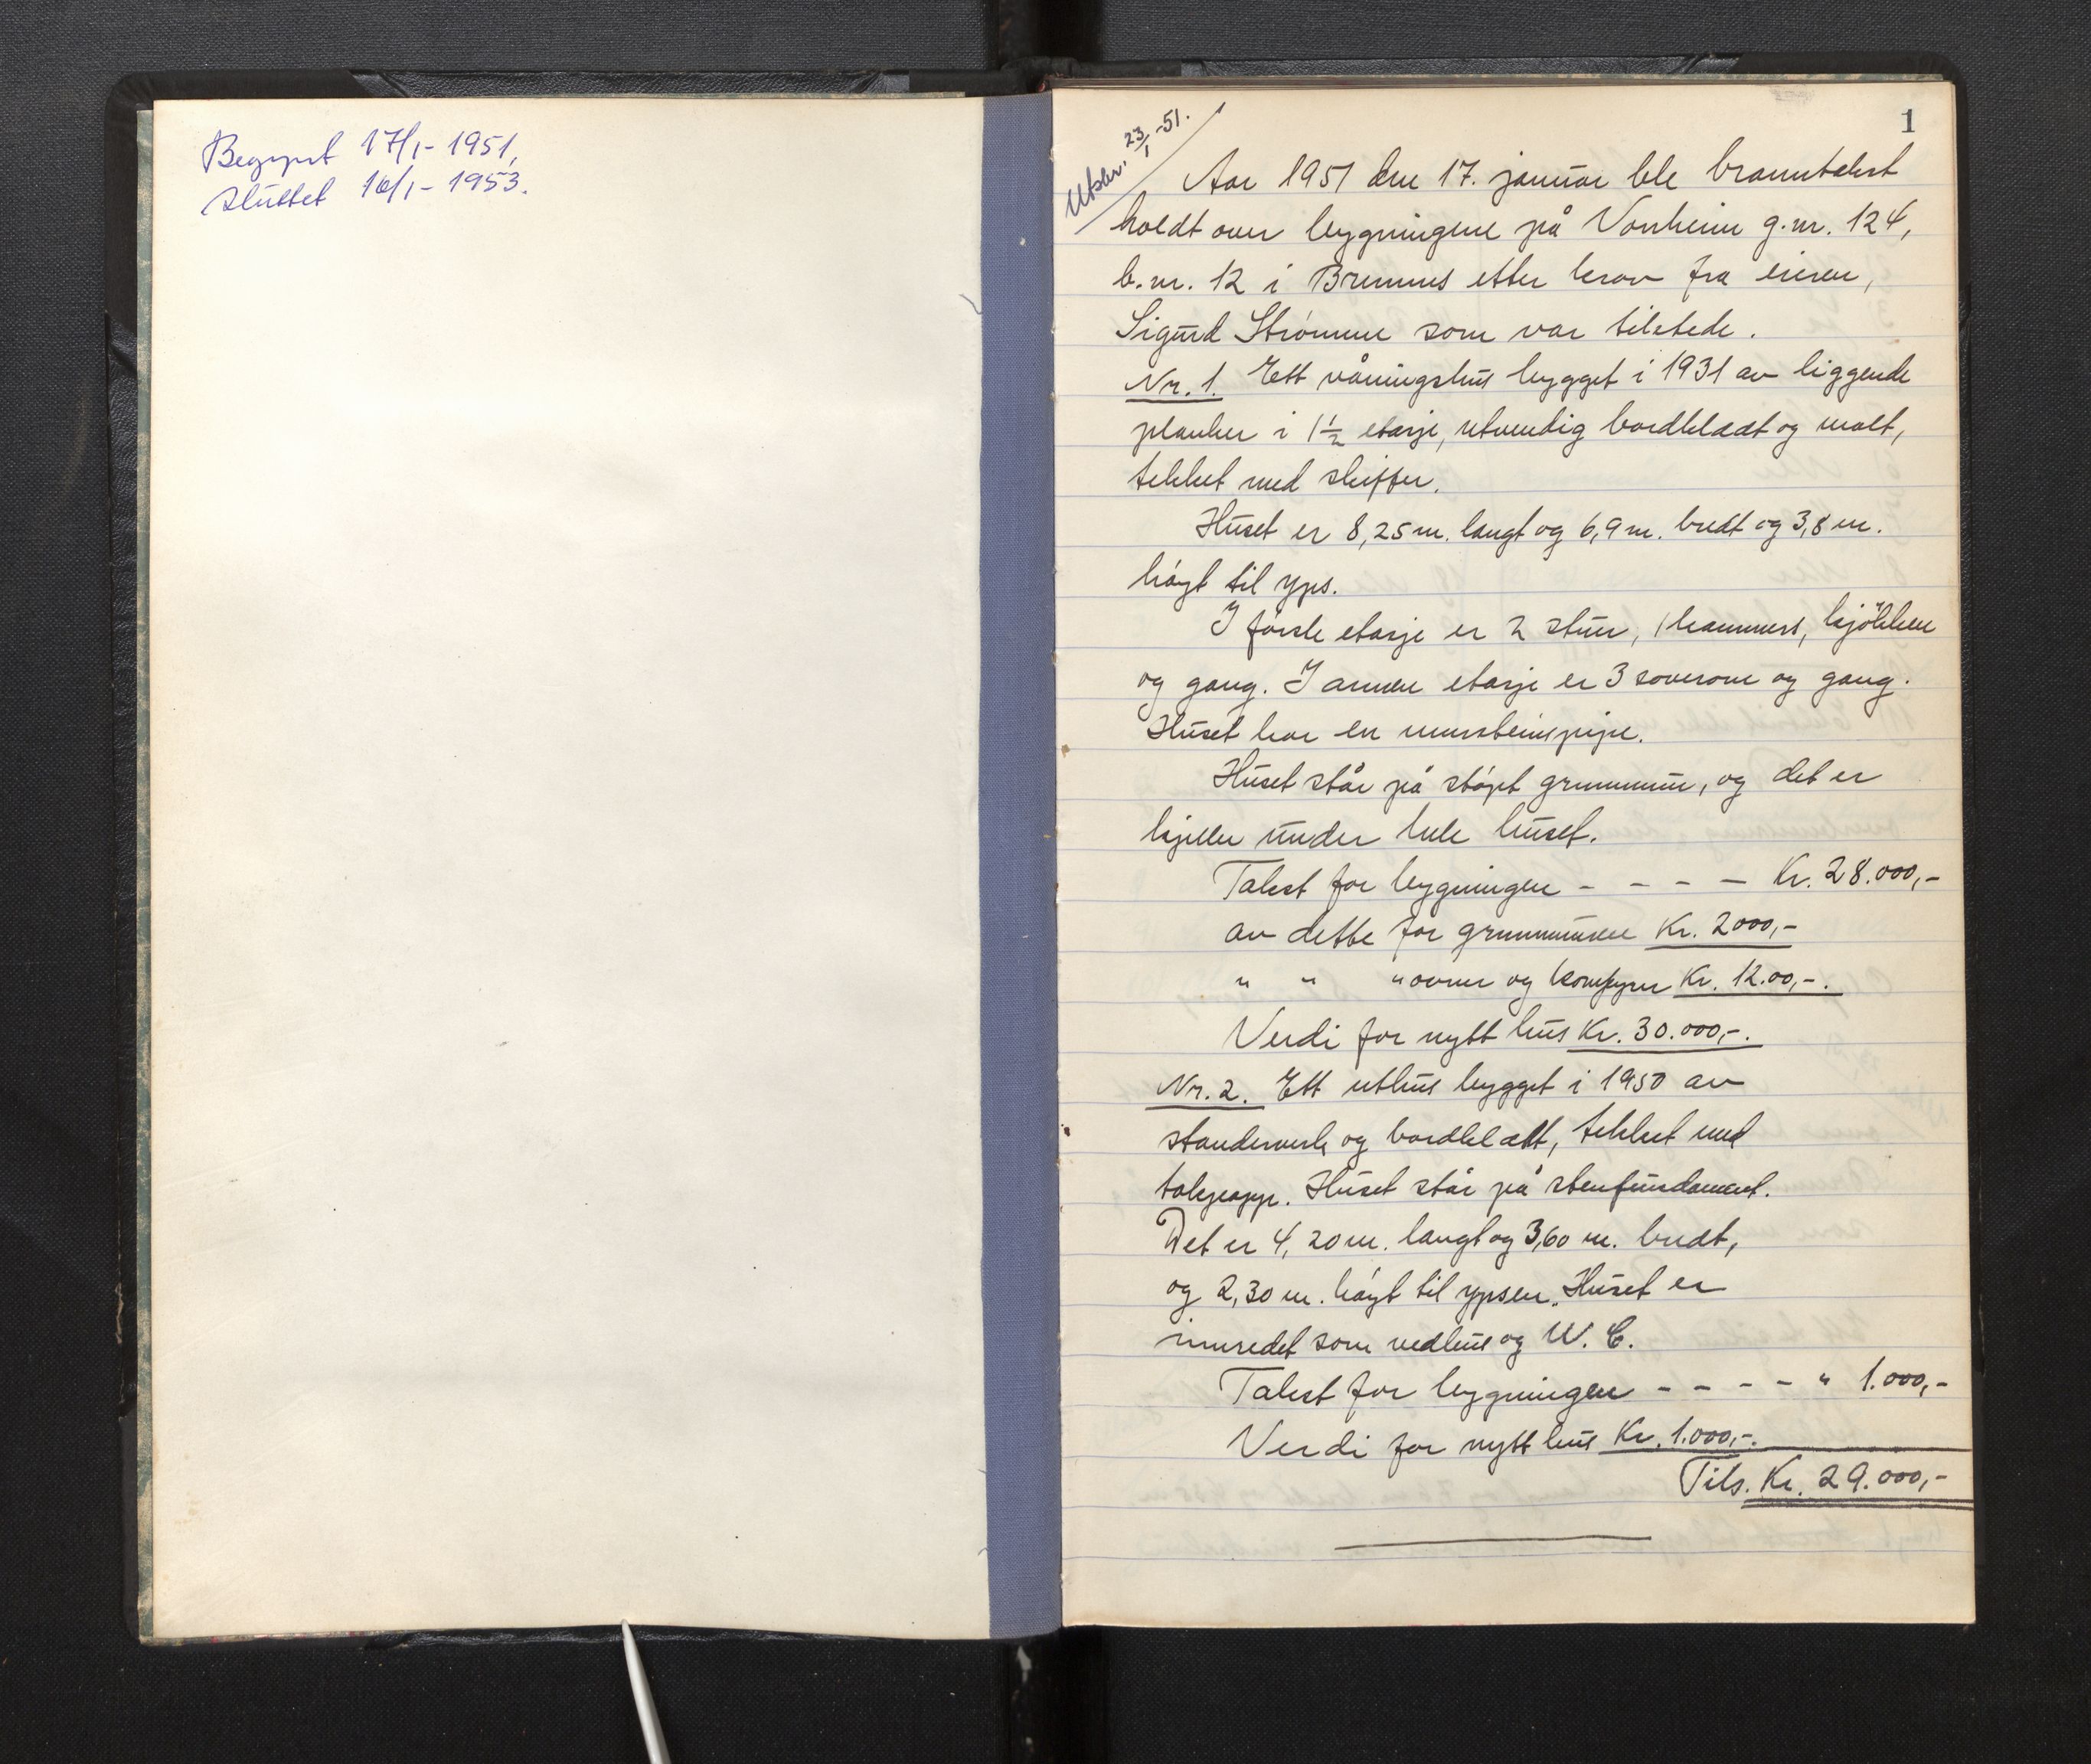 Begynt 17/1- 1951,
sluttet 16/1- 1953.
1
Utskr. 23/1-51.
Aar 1951 den 17. januar ble branntakst
holdt over bygningene på Vonheim g.nr. 124,
b.nr. 12 i Bremnes etter krav fra eieren,
Sigurd Strømme som var tilstede.
Nr. 1. Ett våningshus bygget i 1931 av liggende
planker i 1½ etasje, utvendig bordkledt og malt,
tekket med skiffer.
Huset er 8,25 m. langt og 6,9 m. bredt og 3,8 m.
høyt til yps.
I første etasje er 2 stuer, 1 kammers, kjøkken
og gang. I annen etasje er 3 soverom og gang.
Huset har en mursteinspipe.
Huset står på støpt grunnmur, og det er
kjeller under hele huset.
Takst for bygningen - - - - Kr. 28.000,-
av dette for grunnmuren Kr. 2000,-
" " " ovner og komfyrer Kr. 12.00,-.
Verdi for nytt hus Kr. 30.000,-.
Nr. 2. Ett uthus bygget i 1950 av
standerverk og bordklætt, tekket med
takpapp. Huset står på stenfundament.
Det er 4,20 m. langt og 3,60 m. bredt,
og 2,30 m. høyt til ypsen. Huset er
innredet som vedhus og W. C.
Takst for bygningen - - - - " 1.000,-
Verdi for nytt hus Kr. 1.000,-.
Tils. Kr. 29.000,-